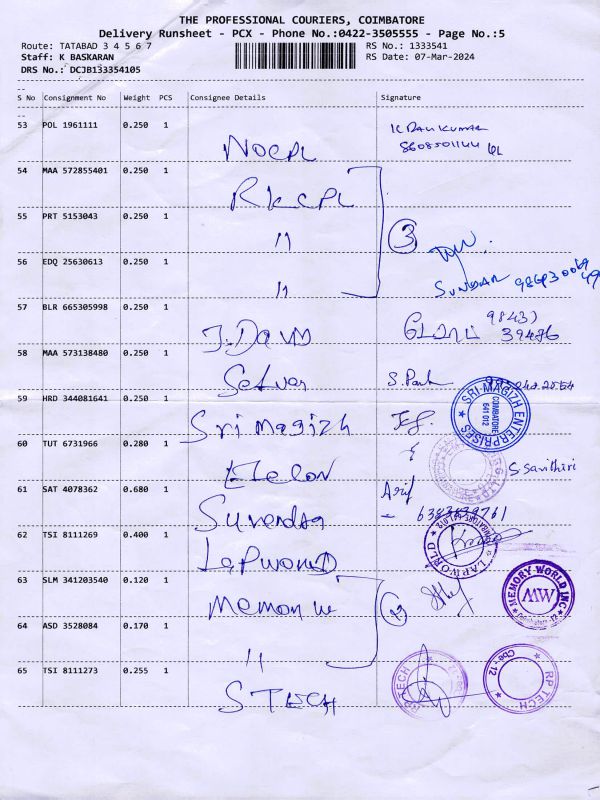 THE PROFESSIONAL COURIERS, COIMBATORE
Delivery Runsheet - PCX - Phone No.:0422-3505555 - Page No.:5
Route: TATABAD 3 4 5 6 7
RS No.: 1333541
Staff: K BASKARAN
RS Date: 07-Mar-2024
DRS No.: DCJB133354105
S No Consignment No Weight PCS Consignee Details Signature
53 POL 1961111 0.250 1
K RAVI KUMAR
8608501144
NOCPL
54 MAA 572855401 0.250 1
RKCPL
55 PRT 5153043 0.250 1
"
3
56 EDQ 25630613 0.250 1
"
SUNDAR
57 BLR 665305998 0.250 1
98433
39496
58 MAA 573138480 0.250 1
Selvan
59 HRD 344081641 0.250 1
Sri Magizh
SRI MAGIZH ENTERPRISES
COIMBATORE
641 012
60 TUT 6731966 0.280 1
Elcon
S. Savithiri
61 SAT 4078362 0.680 1
Asif
Surendra
62 TSI 8111269 0.400 1
LapWorlD
LAPWORLD
63 SLM 341203540 0.120 1
MEMORY WORLD INC
MW
64 ASD 3528084 0.170 1
"
65 TSI 8111273 0.255 1
STECH
RP TECH
RP TECH
Cbe - 12